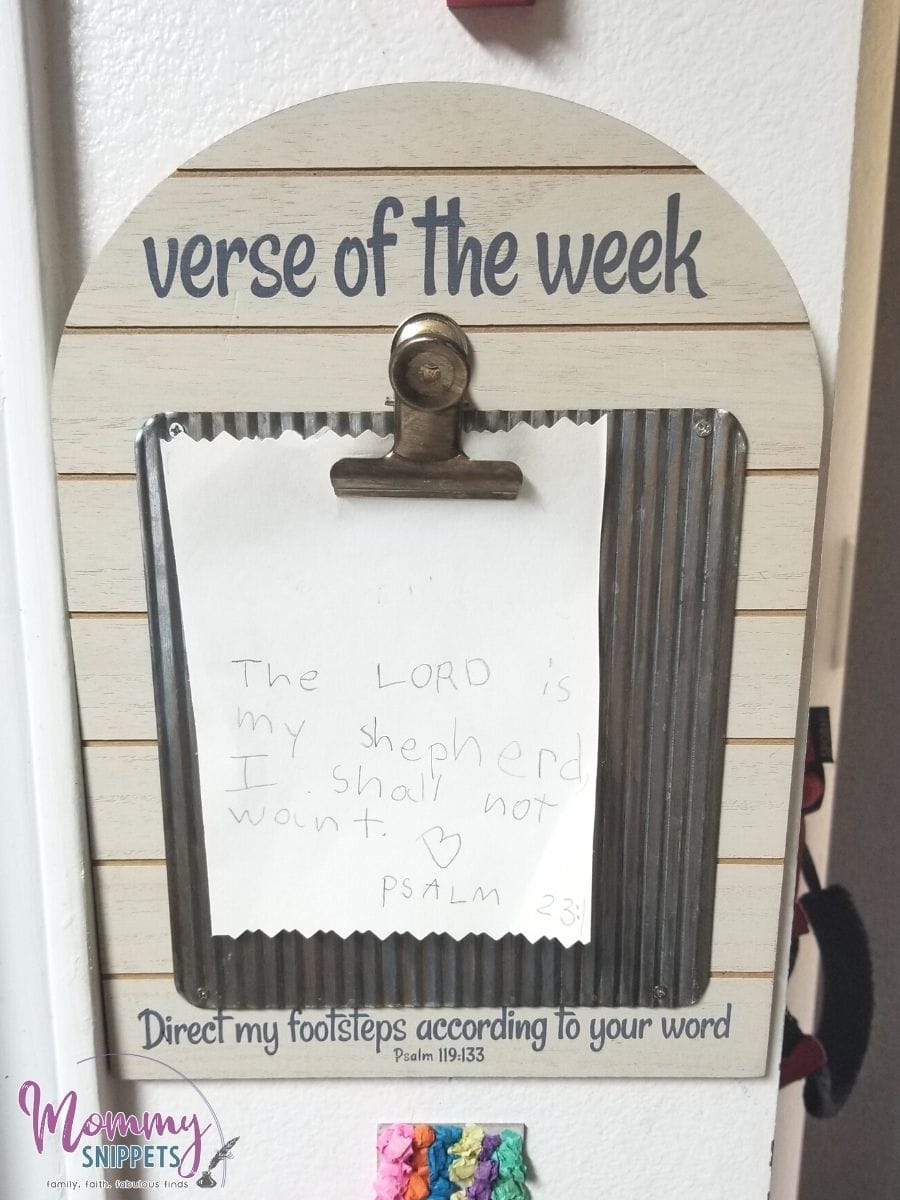 verse of the week
The LORD is
my shepherd,
I shall not
want.
PSALM 23:1
Direct my footsteps according to your word
Psalm 119:133
Mommy
SNIPPETS
family. faith. fabulous finds